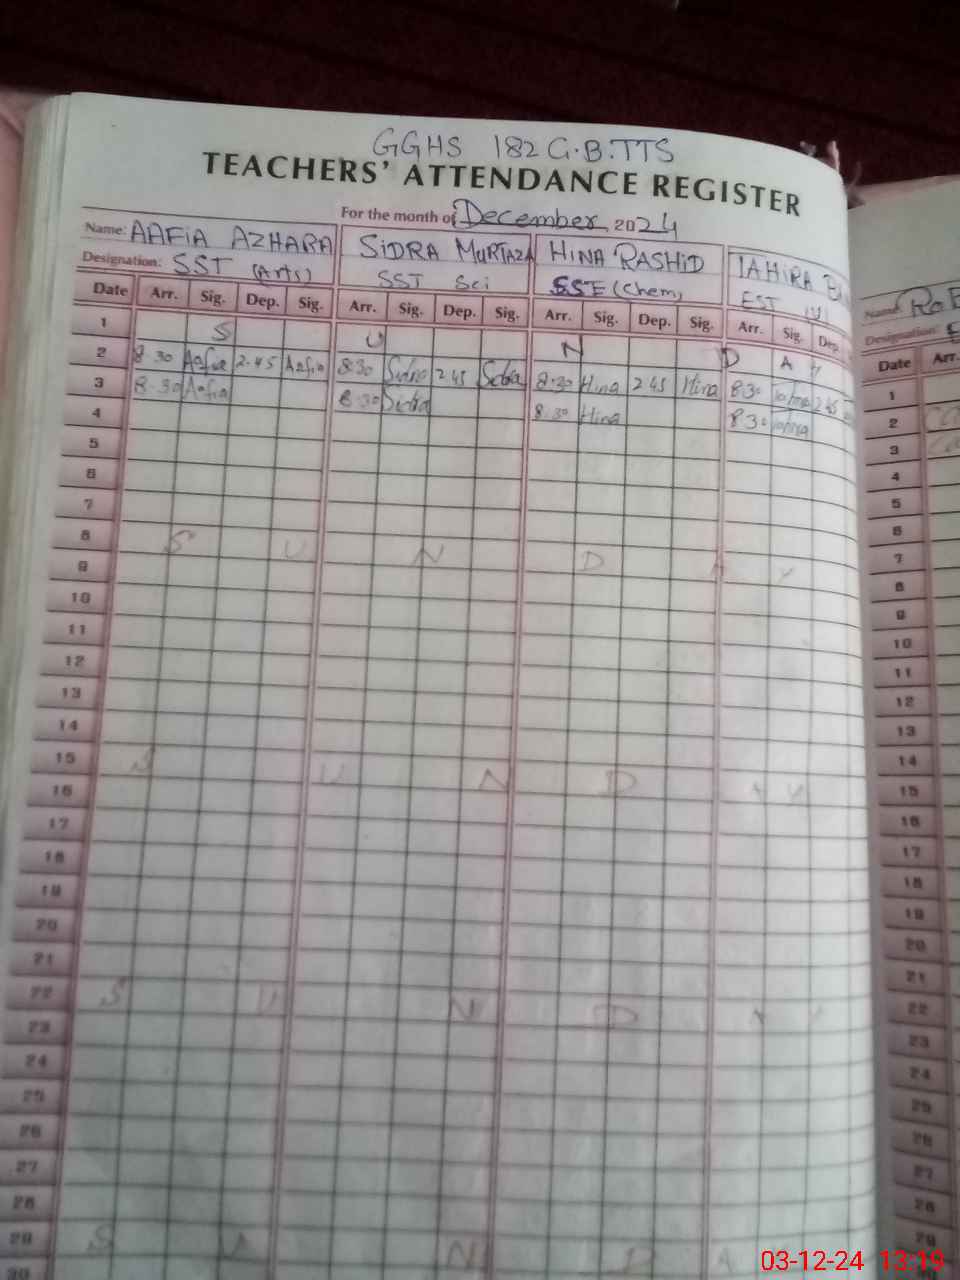 GGHS 182 G.B.TTS
TEACHERS' ATTENDANCE REGISTER
For the month of December 2024
Name: AAFIA AZHARA SIDRA MURTAZA HINA RASHID TAHIRA
Designation: SST (Arts) SST Sci SSE (Chem) EST
Date Arr. Sig. Dep. Sig. Arr. Sig. Dep. Sig. Arr. Sig. Dep. Sig. Arr. Sig. Dep.
1 S U N D A Y
2 8.30 Aafia 2.45 Aafia 8:30 Sidra 2 45 Sidra 8.30 Hina 2 45 Hina 8.30 Tahira 2 45
3 8.30 Aafia 8.30 Sidra 8.30 Hina 8.30 Tahira
4
5
6
7
8 S U N D A Y
9
10
11
12
13
14
15 S U N D A Y
16
17
18
19
20
21
22 S U N D A Y
23
24
25
26
27
28
29 S U N D A Y
30
Name:
Designation:
Date Arr.
1
2
3
4
5
6
7
8
9
10
11
12
13
14
15
16
17
18
19
20
21
22
23
24
25
26
27
28
29
03-12-24 13:19